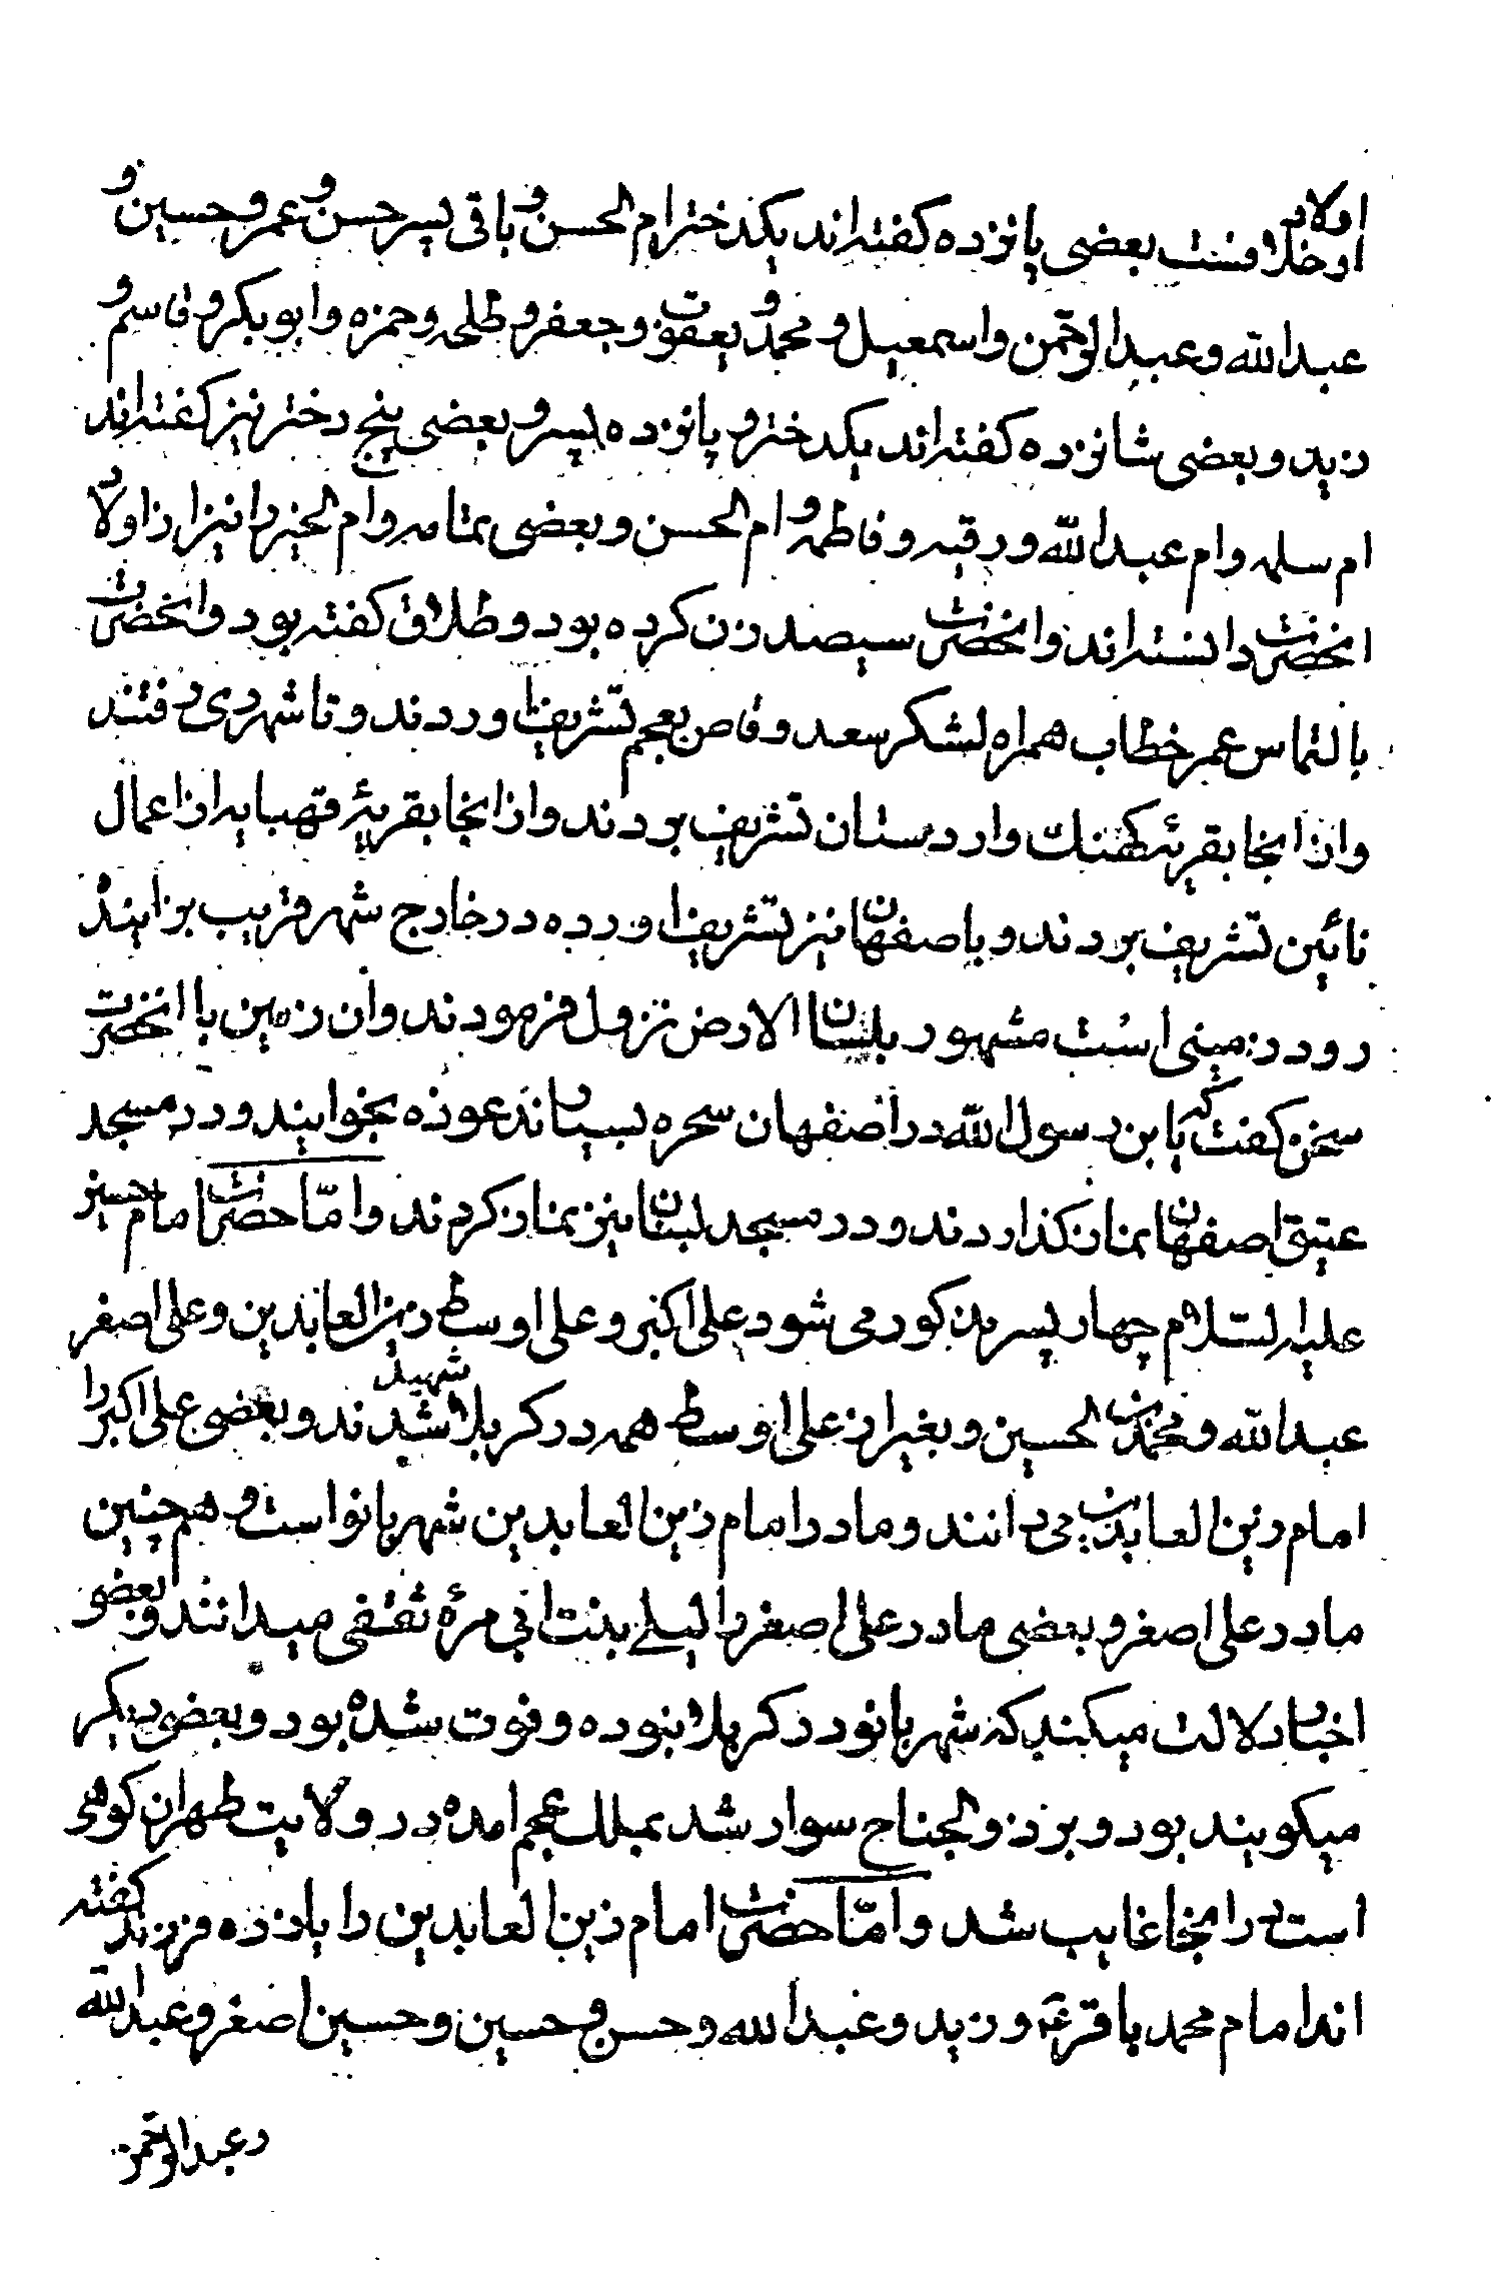 اولاد
او خلافست بعضی پانزده کفته‌اند یکدختر ام الحسن و باقی پسر حسن و عمر و حسین و
عبدالله و عبدالرحمن و اسمعیل و محمد و یعقوب و جعفر و طلحه و حمزه و ابوبکر و قاسم و
زید و بعضی شانزده کفته‌اند یکدختر و پانزده پسر و بعضی پنج دختر نیز کفته‌اند
ام سلمه و ام عبدالله و رقیه و فاطمه و ام الحسن و بعضی تمامه و ام الخیر را نیز از اولاد
انحضرت دانسته‌اند وانحضرت سیصد زن کرده بود و طلاق کفته بود وانحضرت
بالتماس عمر خطاب همراه لشکر سعد وقاص بعجم تشریف اوردند و تا شهر ری رفتند
و از انجا بقریهٔ کهنک و اردستان تشریف بردند و از انجا بقریهٔ قهپایه از اعمال
نائین تشریف بردند و باصفهان نیز تشریف اورده در خارج شهر قریب بزاینده
رود زمینی است مشهور بلسان الارض نزول فرمودند وان زمین با انحضرت
سخن کفت که یابن رسول الله در اصفهان سحره بسیارند عوذه بخوانید و در مسجد
عتیق اصفهان نماز کذاردند و در مسجد لبنان نیز نماز کردند و امّا حضرت امام حسین
علیه السّلام چهار پسر مذکور می شود علی اکبر و علی اوسط زین العابدین و علی اصغر
عبدالله و محمد بن الحسین و بغیر از علی اوسط همه در کربلا شهید شدند و بعضی علی اکبر را
امام زین العابدین می دانند و مادر امام زین العابدین شهربانو است و هم چنین
مادر علی اصغر و بعضی مادر علی اصغر را لیلی بنت ابی مرّهٔ ثقفی میدانند و بعضی
اخبار دلالت میکند که شهربانو در کربلا نبوده و فوت شده بود و بعضی دیکر
میکویند بود و بر ذوالجناح سوار شد بملک عجم امده در ولایت طهران کوهی
است در انجا غایب شد و امّا حضرت امام زین العابدین را پانزده فرزند کفته
اند امام محمد باقر ع و زید و عبدالله و حسن و حسین و حسین اصغر و عبدالله
و عبدالرحمن